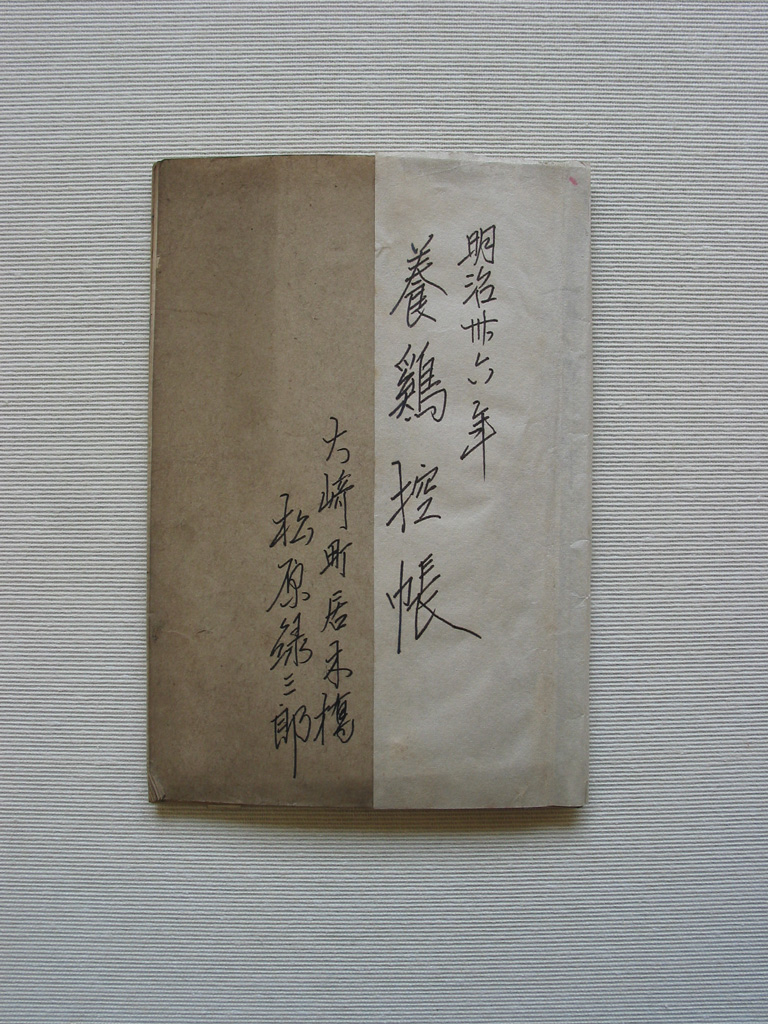 明治卅六年
養鶏控帳
大崎町居木橋
松原録三郎